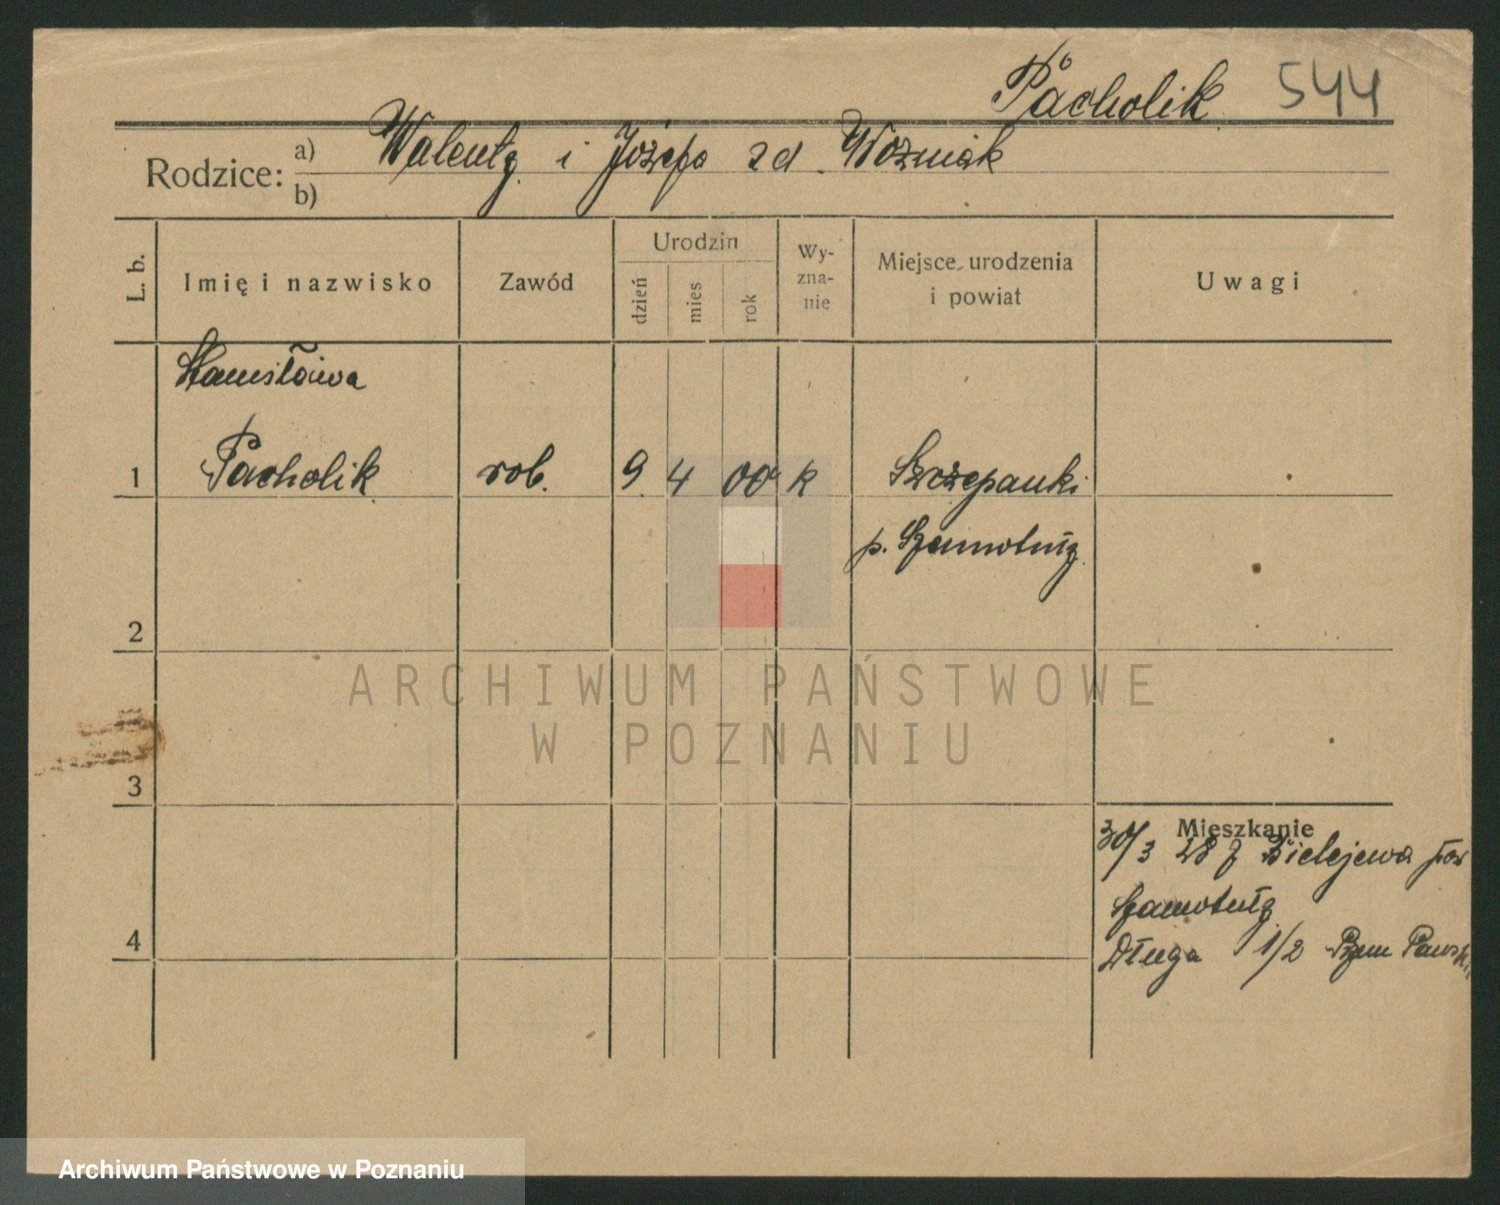 Pacholik 544
Rodzice: a) b) Walenty i Józefa zd. Woźniak
L. b. Imię i nazwisko Zawód Urodzin dzień mies rok Wy-zna-nie Miejsce urodzenia i powiat Uwagi
Stanisława
1 Pacholik rob. 9 4 00 k Szczepanki
p. Szamotuły
2
3
Mieszkanie
30/3 28 z Bielejewa pow
Szamotuły
4 Długa 1/2
ARCHIWUM PAŃSTWOWE
W POZNANIU
Archiwum Państwowe w Poznaniu